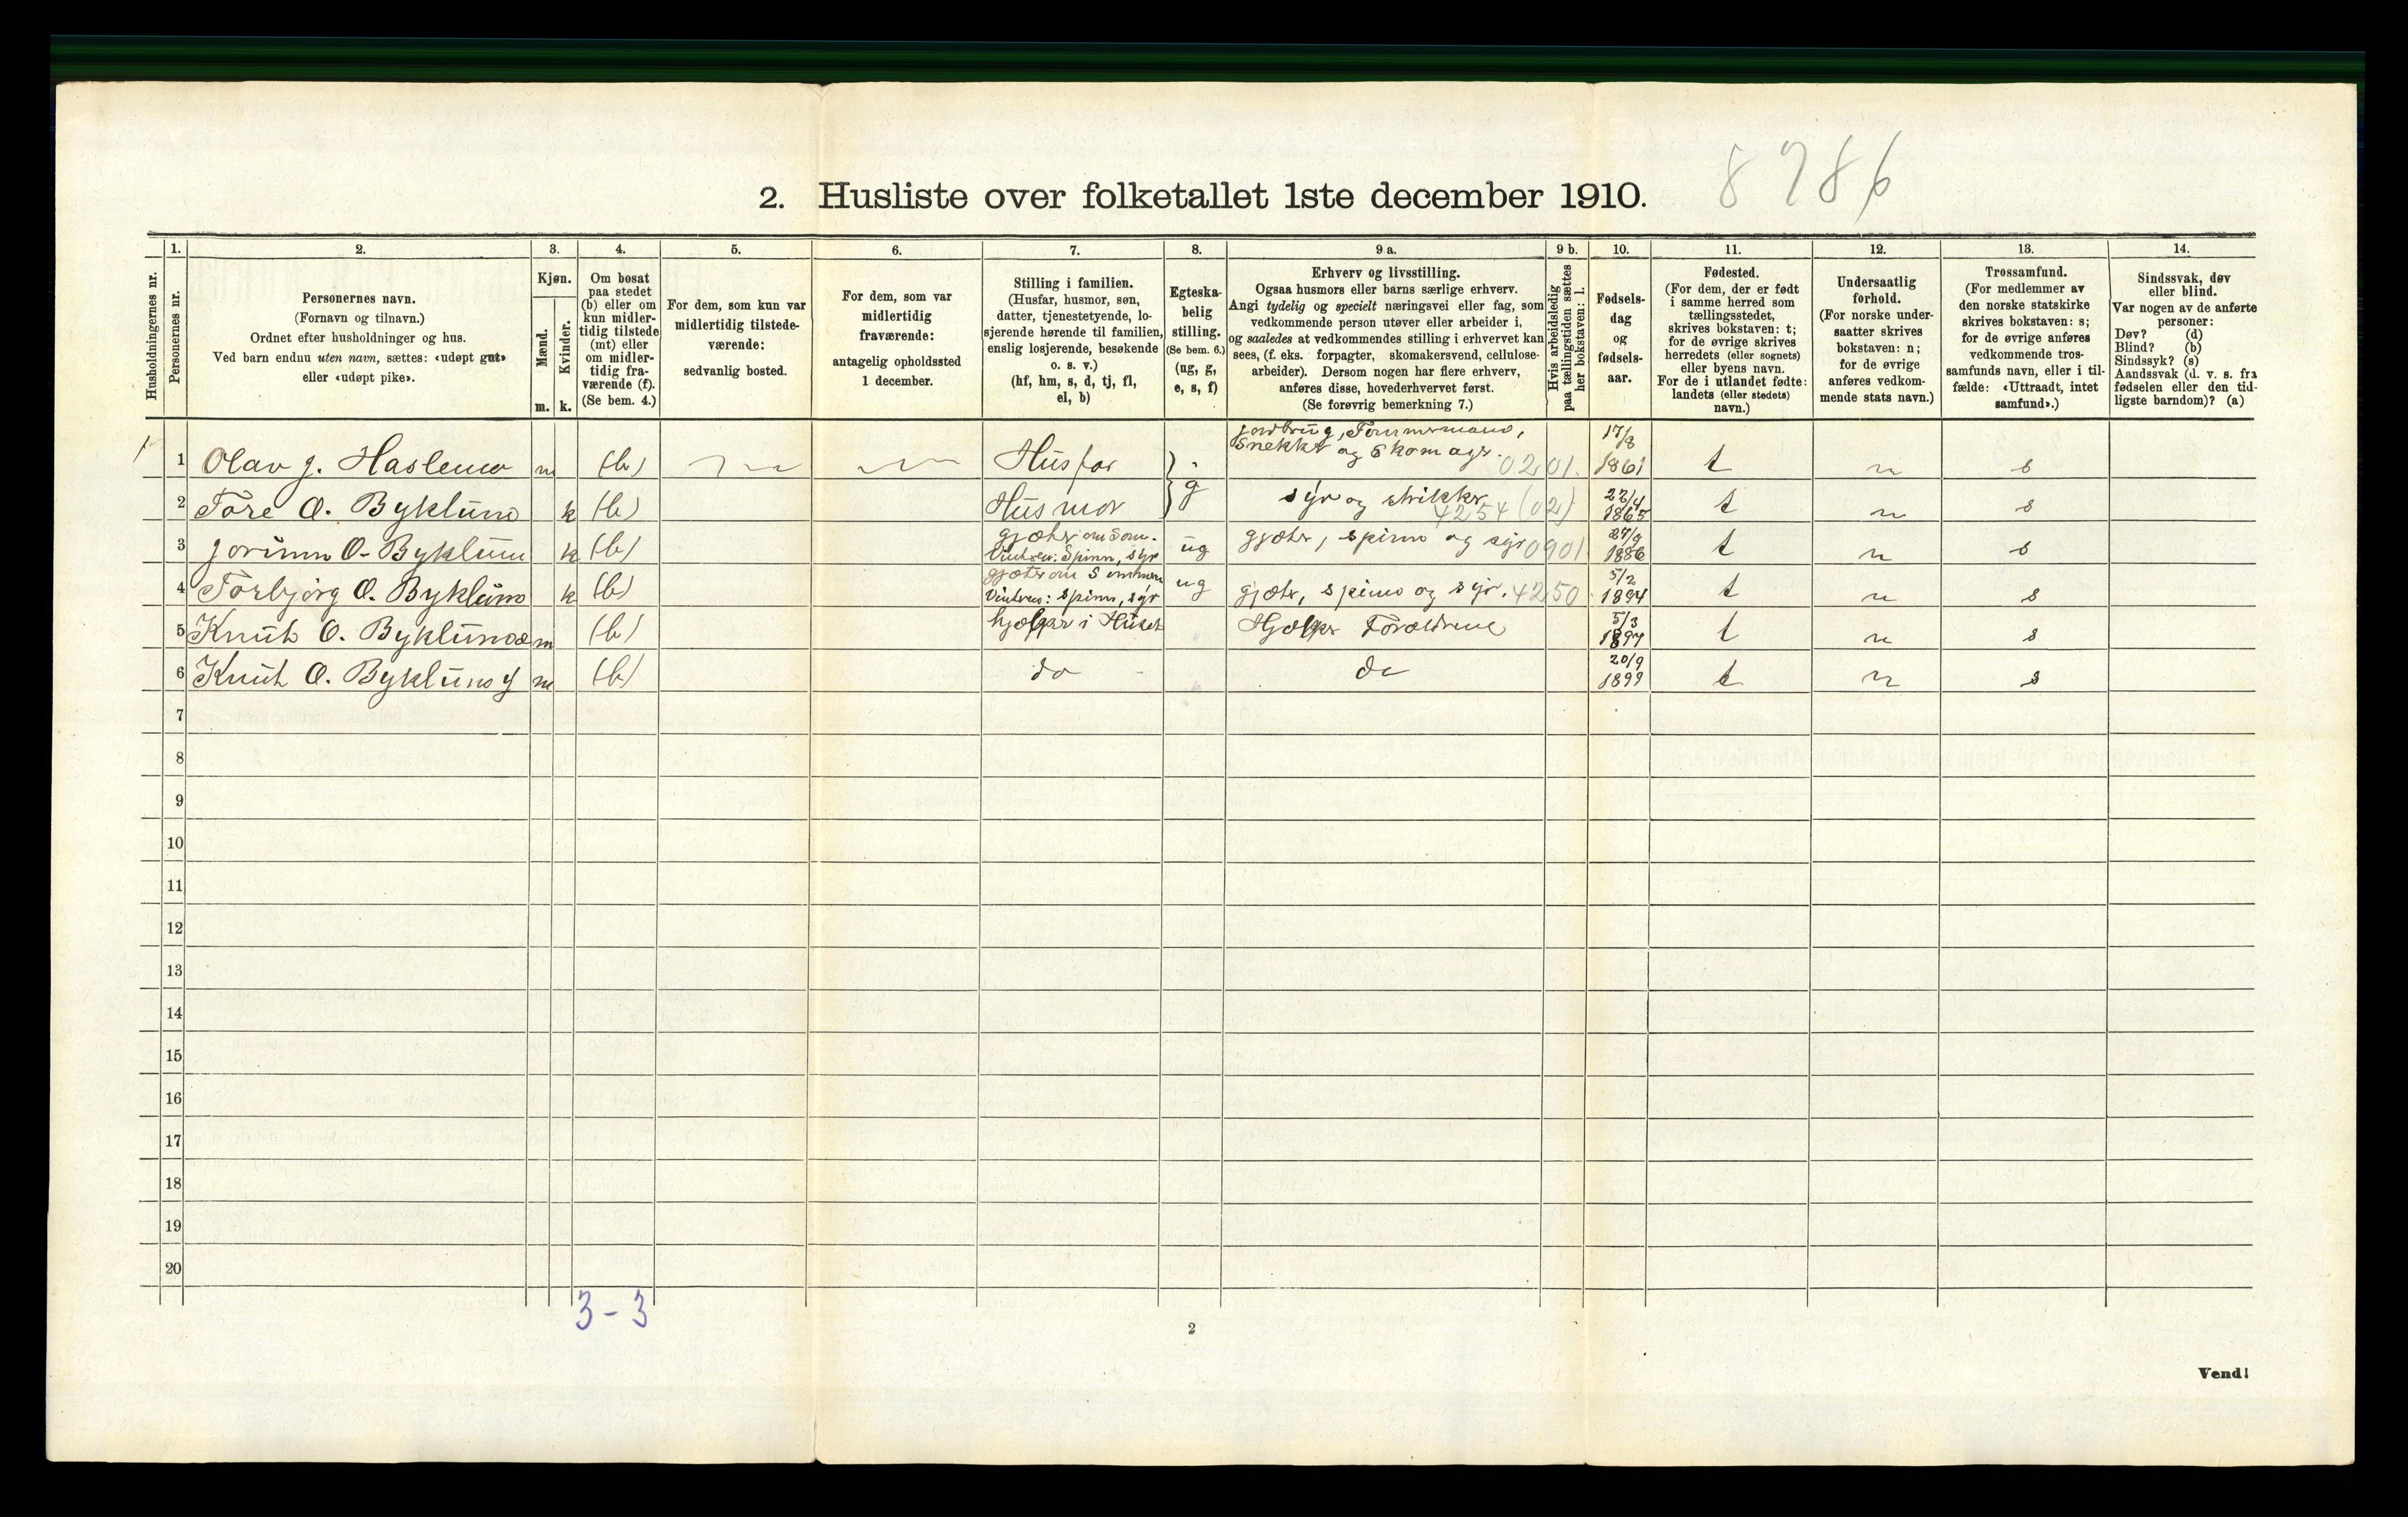 8786
2. Husliste over folketallet 1ste december 1910.
Husholdningernes nr.
1.
Personernes nr.
2.
Personernes navn.
(Fornavn og tilnavn.)
Ordnet efter husholdninger og hus.
Ved barn endnu uten navn, sættes: «udøpt gut»
eller «udøpt pike».
3.
Kjøn.
Mænd.
Kvinder.
m. k.
4.
Om bosat
paa stedet
(b) eller om
kun midler-
tidig tilstede
(mt) eller
om midler-
tidig fra-
værende (f).
(Se bem. 4.)
5.
For dem, som kun var
midlertidig tilstede-
værende:
sedvanlig bosted.
6.
For dem, som var
midlertidig
fraværende:
antagelig opholdssted
1 december.
7.
Stilling i familien.
(Husfar, husmor, søn,
datter, tjenestetyende, lo-
sjerende hørende til familien,
enslig losjerende, besøkende
o. s. v.)
(hf, hm, s, d, tj, fl,
el, b)
8.
Egteska-
belig
stilling.
(Se bem. 6.)
(ug, g,
e, s, f)
9 a.
Erhverv og livsstilling.
Ogsaa husmors eller barns særlige erhverv.
Angi tydelig og specielt næringsvei eller fag, som
vedkommende person utøver eller arbeider i,
og saaledes at vedkommendes stilling i erhvervet kan
sees, (f. eks. forpagter, skomakersvend, cellulose-
arbeider). Dersom nogen har flere erhverv,
anføres disse, hovederhvervet først.
(Se forøvrig bemerkning 7.)
9 b.
Hvis arbeidsledig
paa tællingstiden sættes
her bokstaven: l.
10.
Fødsels-
dag
og
fødsels-
aar.
11.
Fødested.
(For dem, der er født
i samme herred som
tællingsstedet,
skrives bokstaven: t;
for de øvrige skrives
herredets (eller sognets)
eller byens navn.
For de i utlandet fødte:
landets (eller stedets)
navn.)
12.
Undersaatlig
forhold.
(For norske under-
saatter skrives
bokstaven: n;
for de øvrige
anføres vedkom-
mende stats navn.)
13.
Trossamfund.
(For medlemmer av
den norske statskirke
skrives bokstaven: s;
for de øvrige anføres
vedkommende tros-
samfunds navn, eller i til-
fælde: «Uttraadt, intet
samfund».)
14.
Sindssvak, døv
eller blind.
Var nogen av de anførte
personer:
Døv? (d)
Blind? (b)
Sindssyk? (s)
Aandssvak (d. v. s. fra
fødselen eller den tid-
ligste barndom)? (a)
1 1 Olav J. Haslemo m (b) Husfar Jordbrug, Tømmermand, Snekker og Skomager. 0201. 17/8 1861 t n s
2 Tore O. Byklund k (b) Husmor g syr og strikker 4254 (02) 22/4 1865 t n s
3 Jorunn O. Byklum k (b) gjæter om Som. Vinteren: Spinn, syr ug gjæter, spinn og syr 0901 27/9 1886 t n s
4 Torbjørg O. Byklum k (b) gjæter om Sommeren Vinteren: spinn, syr ug gjæter, spinn og syr. 4250 5/2 1894 t n s
5 Knut O. Byklum d æ m (b) hjælper i Huset " Hjælper Forældrene 5/3 1897 t n s
6 Knut O. Byklum d y m (b) do " do 20/9 1899 t n s
7
8
9
10
11
12
13
14
15
16
17
18
19
20
3-3
2
Vend!